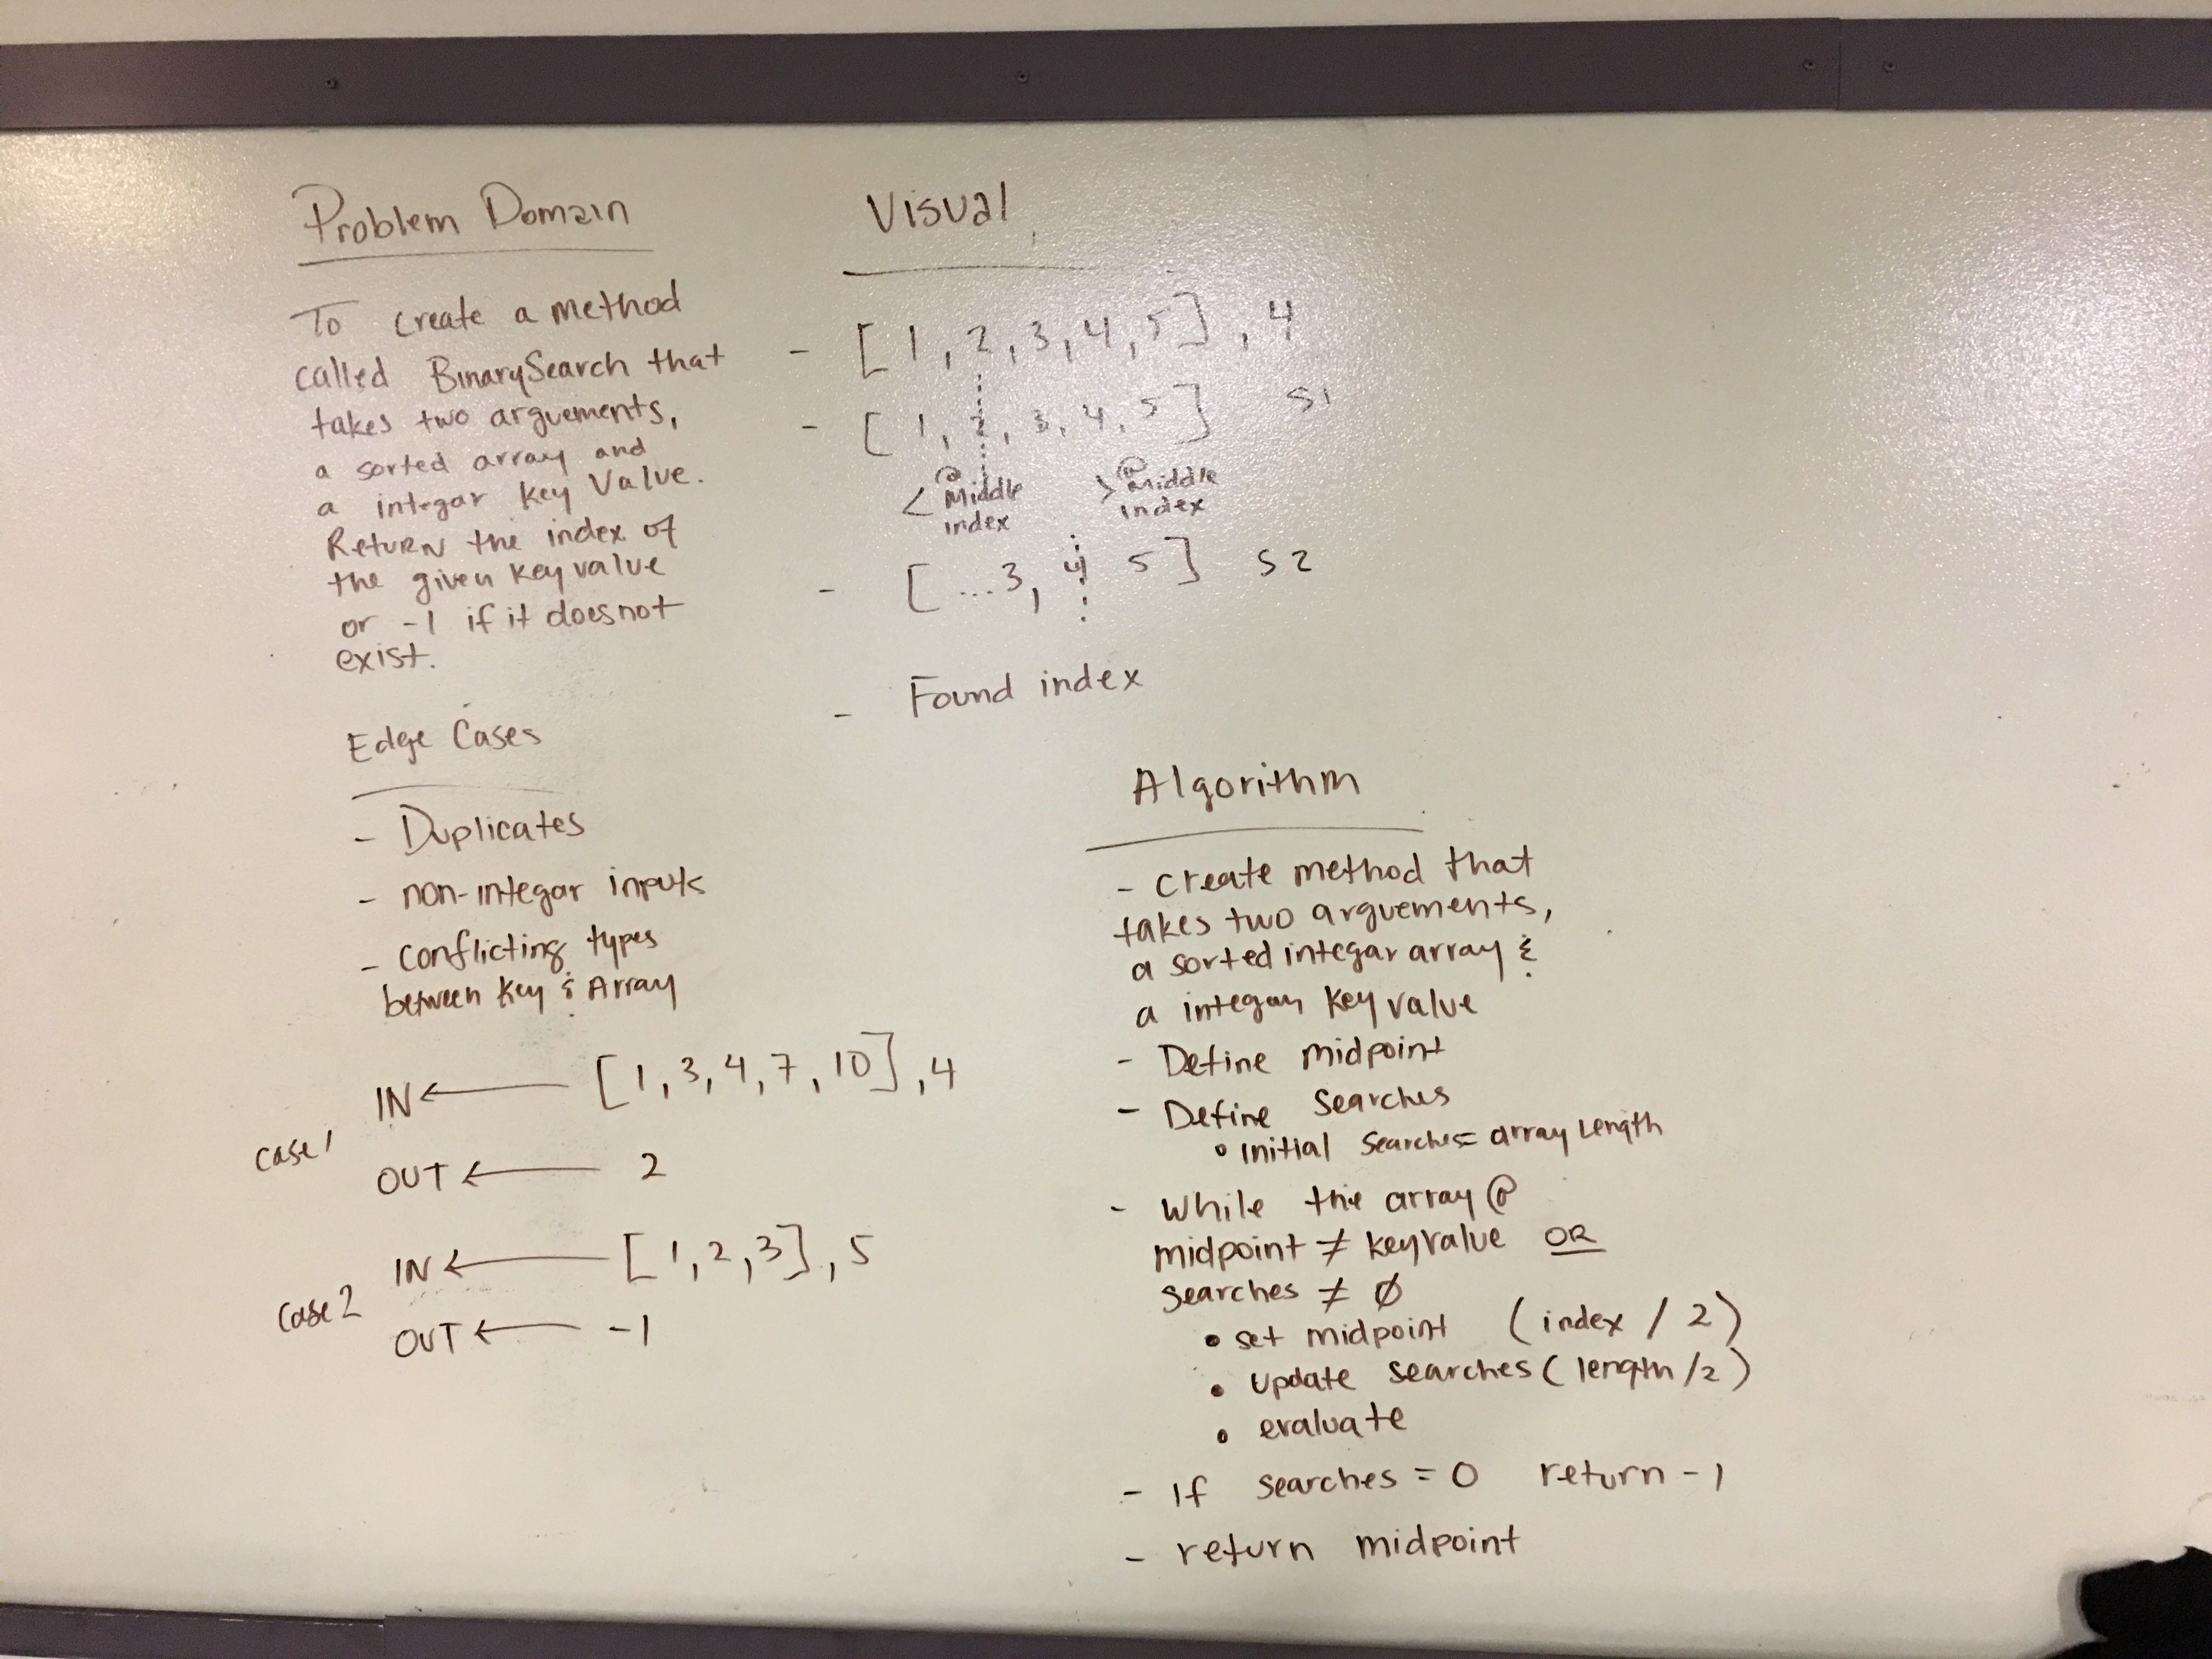 Problem Domain
To create a method
called BinarySearch that
takes two arguements,
a sorted array and
a integar key Value.
Return the index of
the given key value
or -1 if it does not
exist.
Edge Cases
- Duplicates
- non-integar inputs
- conflicting types
between key & Array
case 1
IN ← [1, 3, 4, 7, 10], 4
OUT ← 2
case 2
IN ← [1, 2, 3], 5
OUT ← -1
Visual
- [1, 2, 3, 4, 5], 4
- [1, 2, 3, 4, 5] S1
< @ Middle index
> @ Middle index
- [...3, 4 5] S2
- Found index
Algorithm
- create method that
takes two arguements,
a sorted integar array &
a integar key value
- Define midpoint
- Define searches
• initial searches = array length
- while the array @
midpoint ≠ keyvalue OR
searches ≠ Ø
• set midpoint (index / 2)
• update searches (length / 2)
• evaluate
- If searches = 0 return -1
- return midpoint